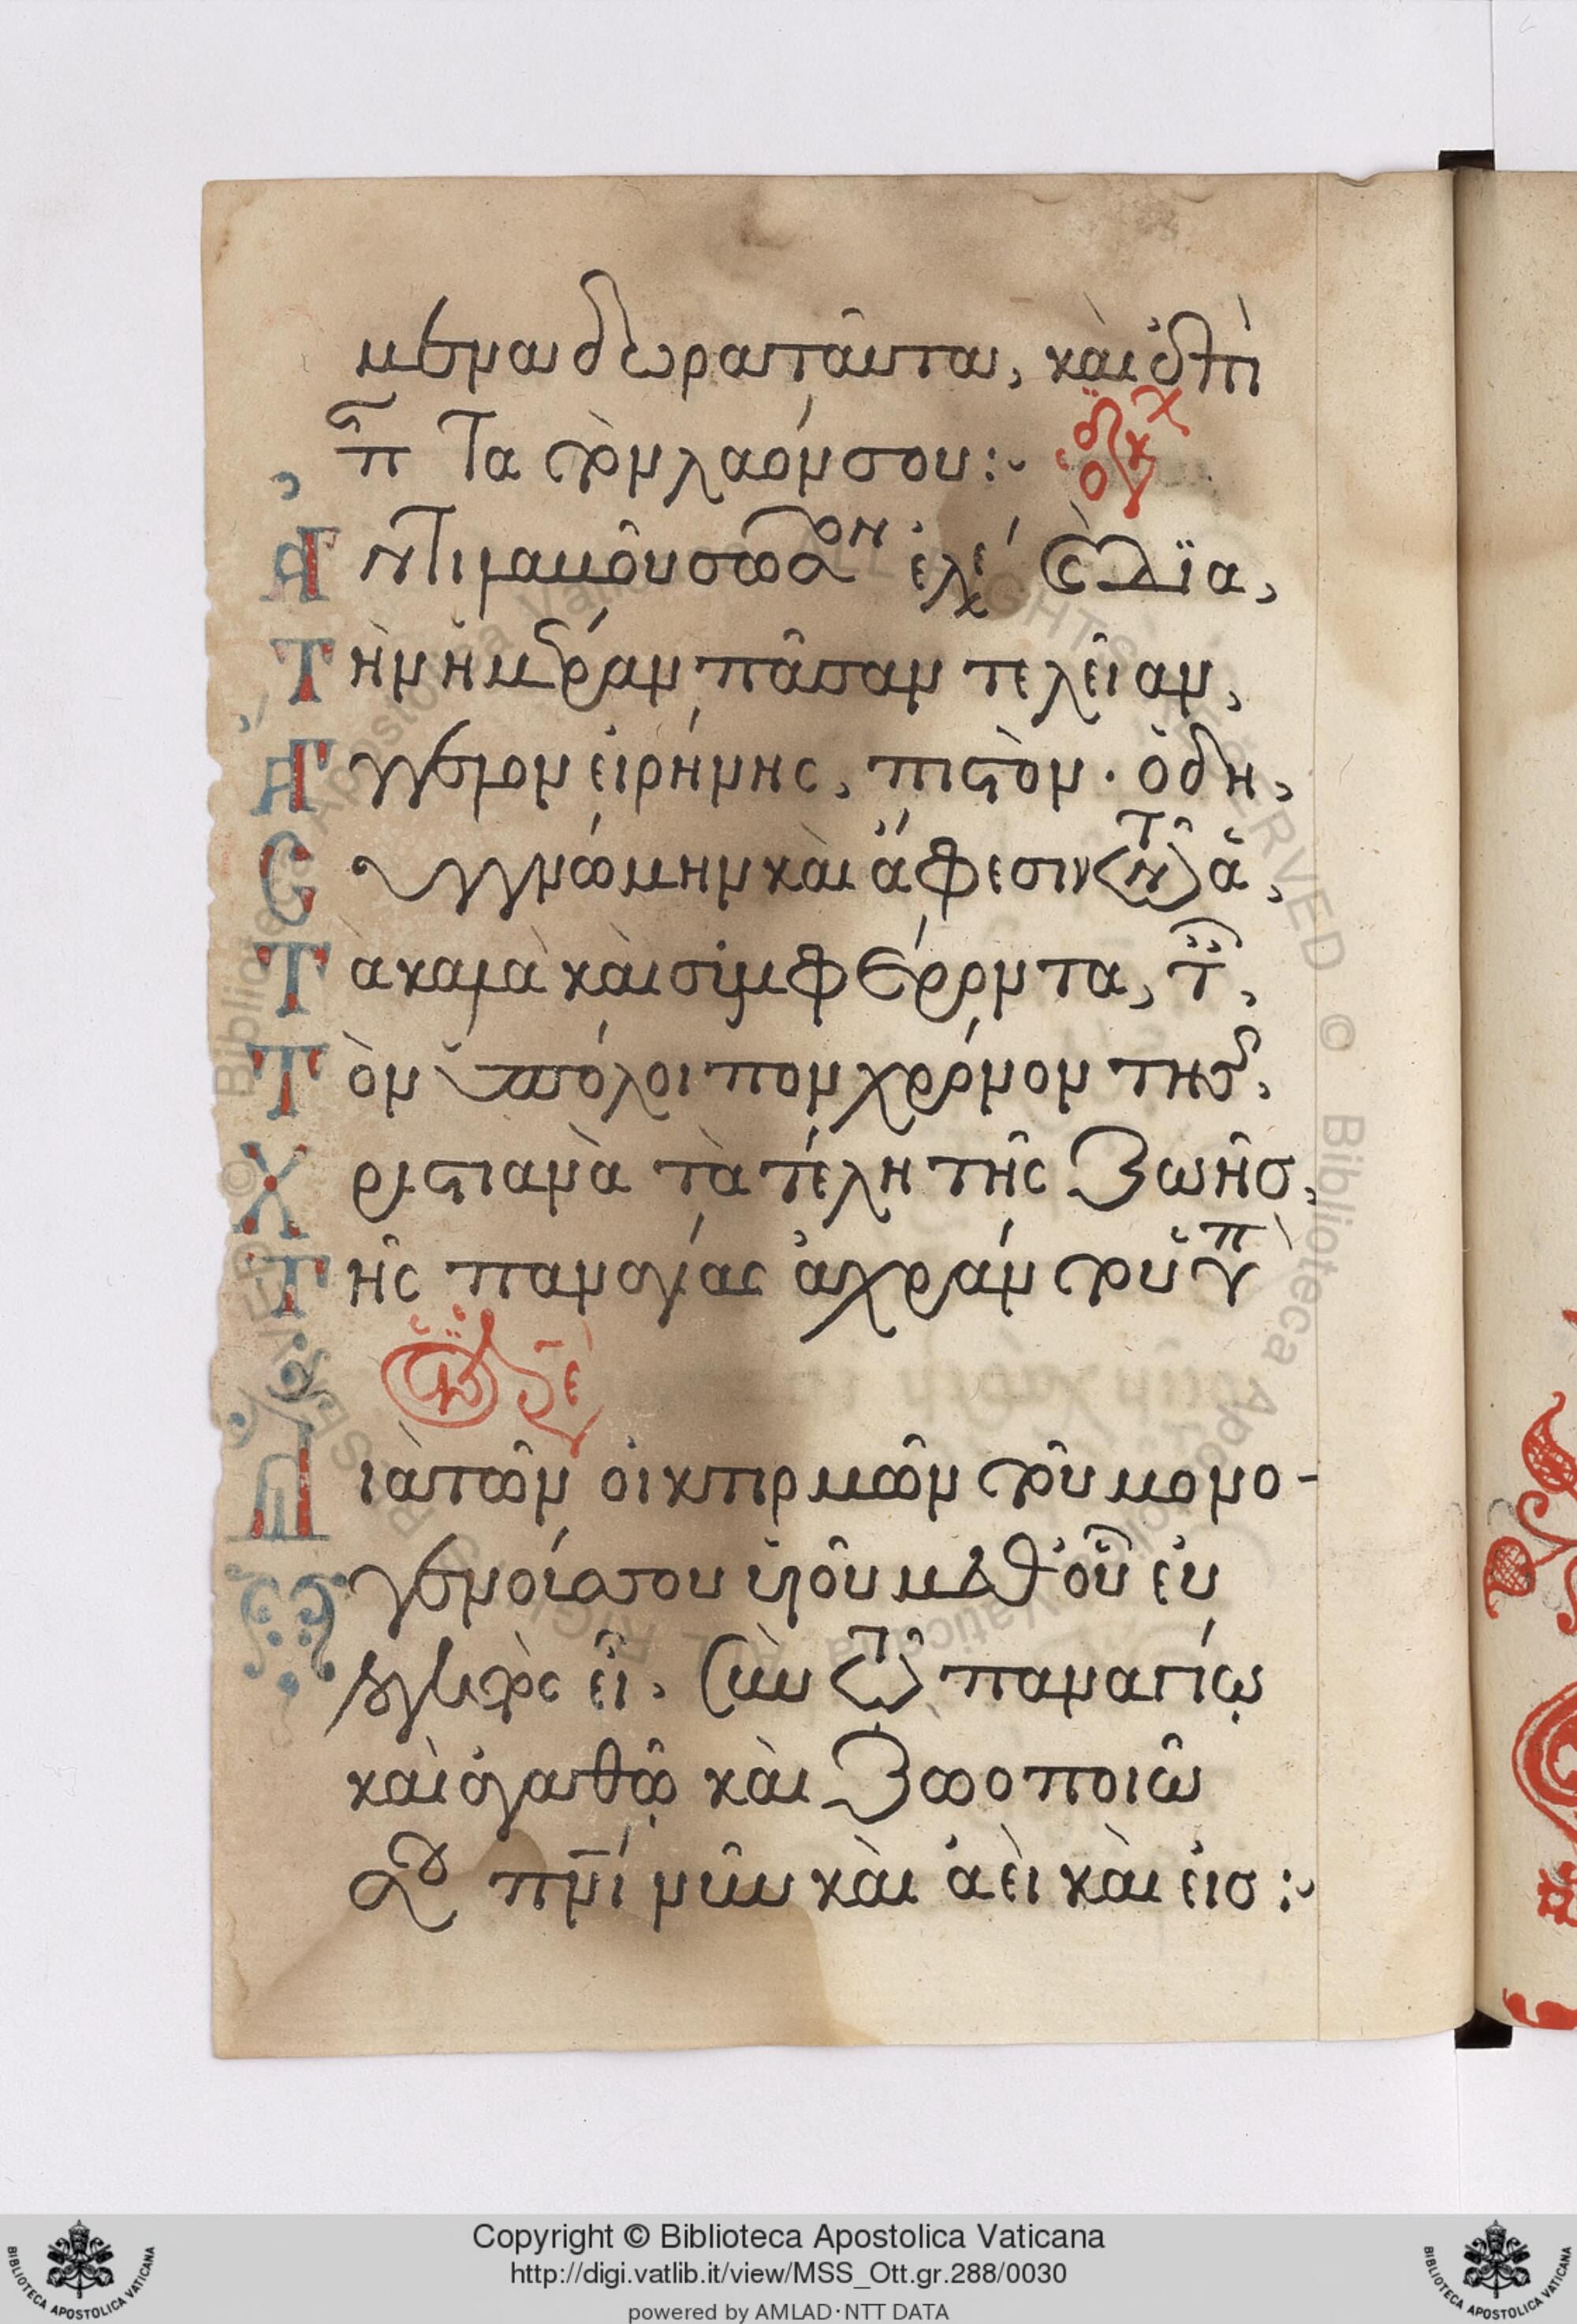 μενα δῶρα ταῦτα, καὶ ἐπὶ
π τα τὸν λαόν σου:
Ἀντιλαβοῦ σῶσον· ἐλέ
Τὴν ἡμέραν πᾶσαν τελείαν,
Ἄγγελον εἰρήνης, πιστὸν· ὁδη,
Συγγνώμην καὶ ἄφεσιν τῶν ἁ,
Τὰ καλὰ καὶ συμφέροντα, τ,
Τὸν ὑπόλοιπον χρόνον τῆς,
Χριστιανὰ τὰ τέλη τῆς ζωῆσ,
Τῆς παναγίας ἀχράν του ὑπ
Διὰ τῶν οἰκτιρμῶν τοῦ μονο-
γενοῦς σου υἱοῦ μεθ' οὗ εὐ
λογητὸς εἶ. σὺν τῶ παναγίῳ
καὶ ἀγαθῷ καὶ ζωοποιῶ
σου πνι νῦν καὶ ἀεὶ καὶ εἰσ:
Copyright © Biblioteca Apostolica Vaticana
http://digi.vatlib.it/view/MSS_Ott.gr.288/0030
powered by AMLAD·NTT DATA
BIBLIOTECA APOSTOLICA VATICANA
BIBLIOTECA APOSTOLICA VATICANA